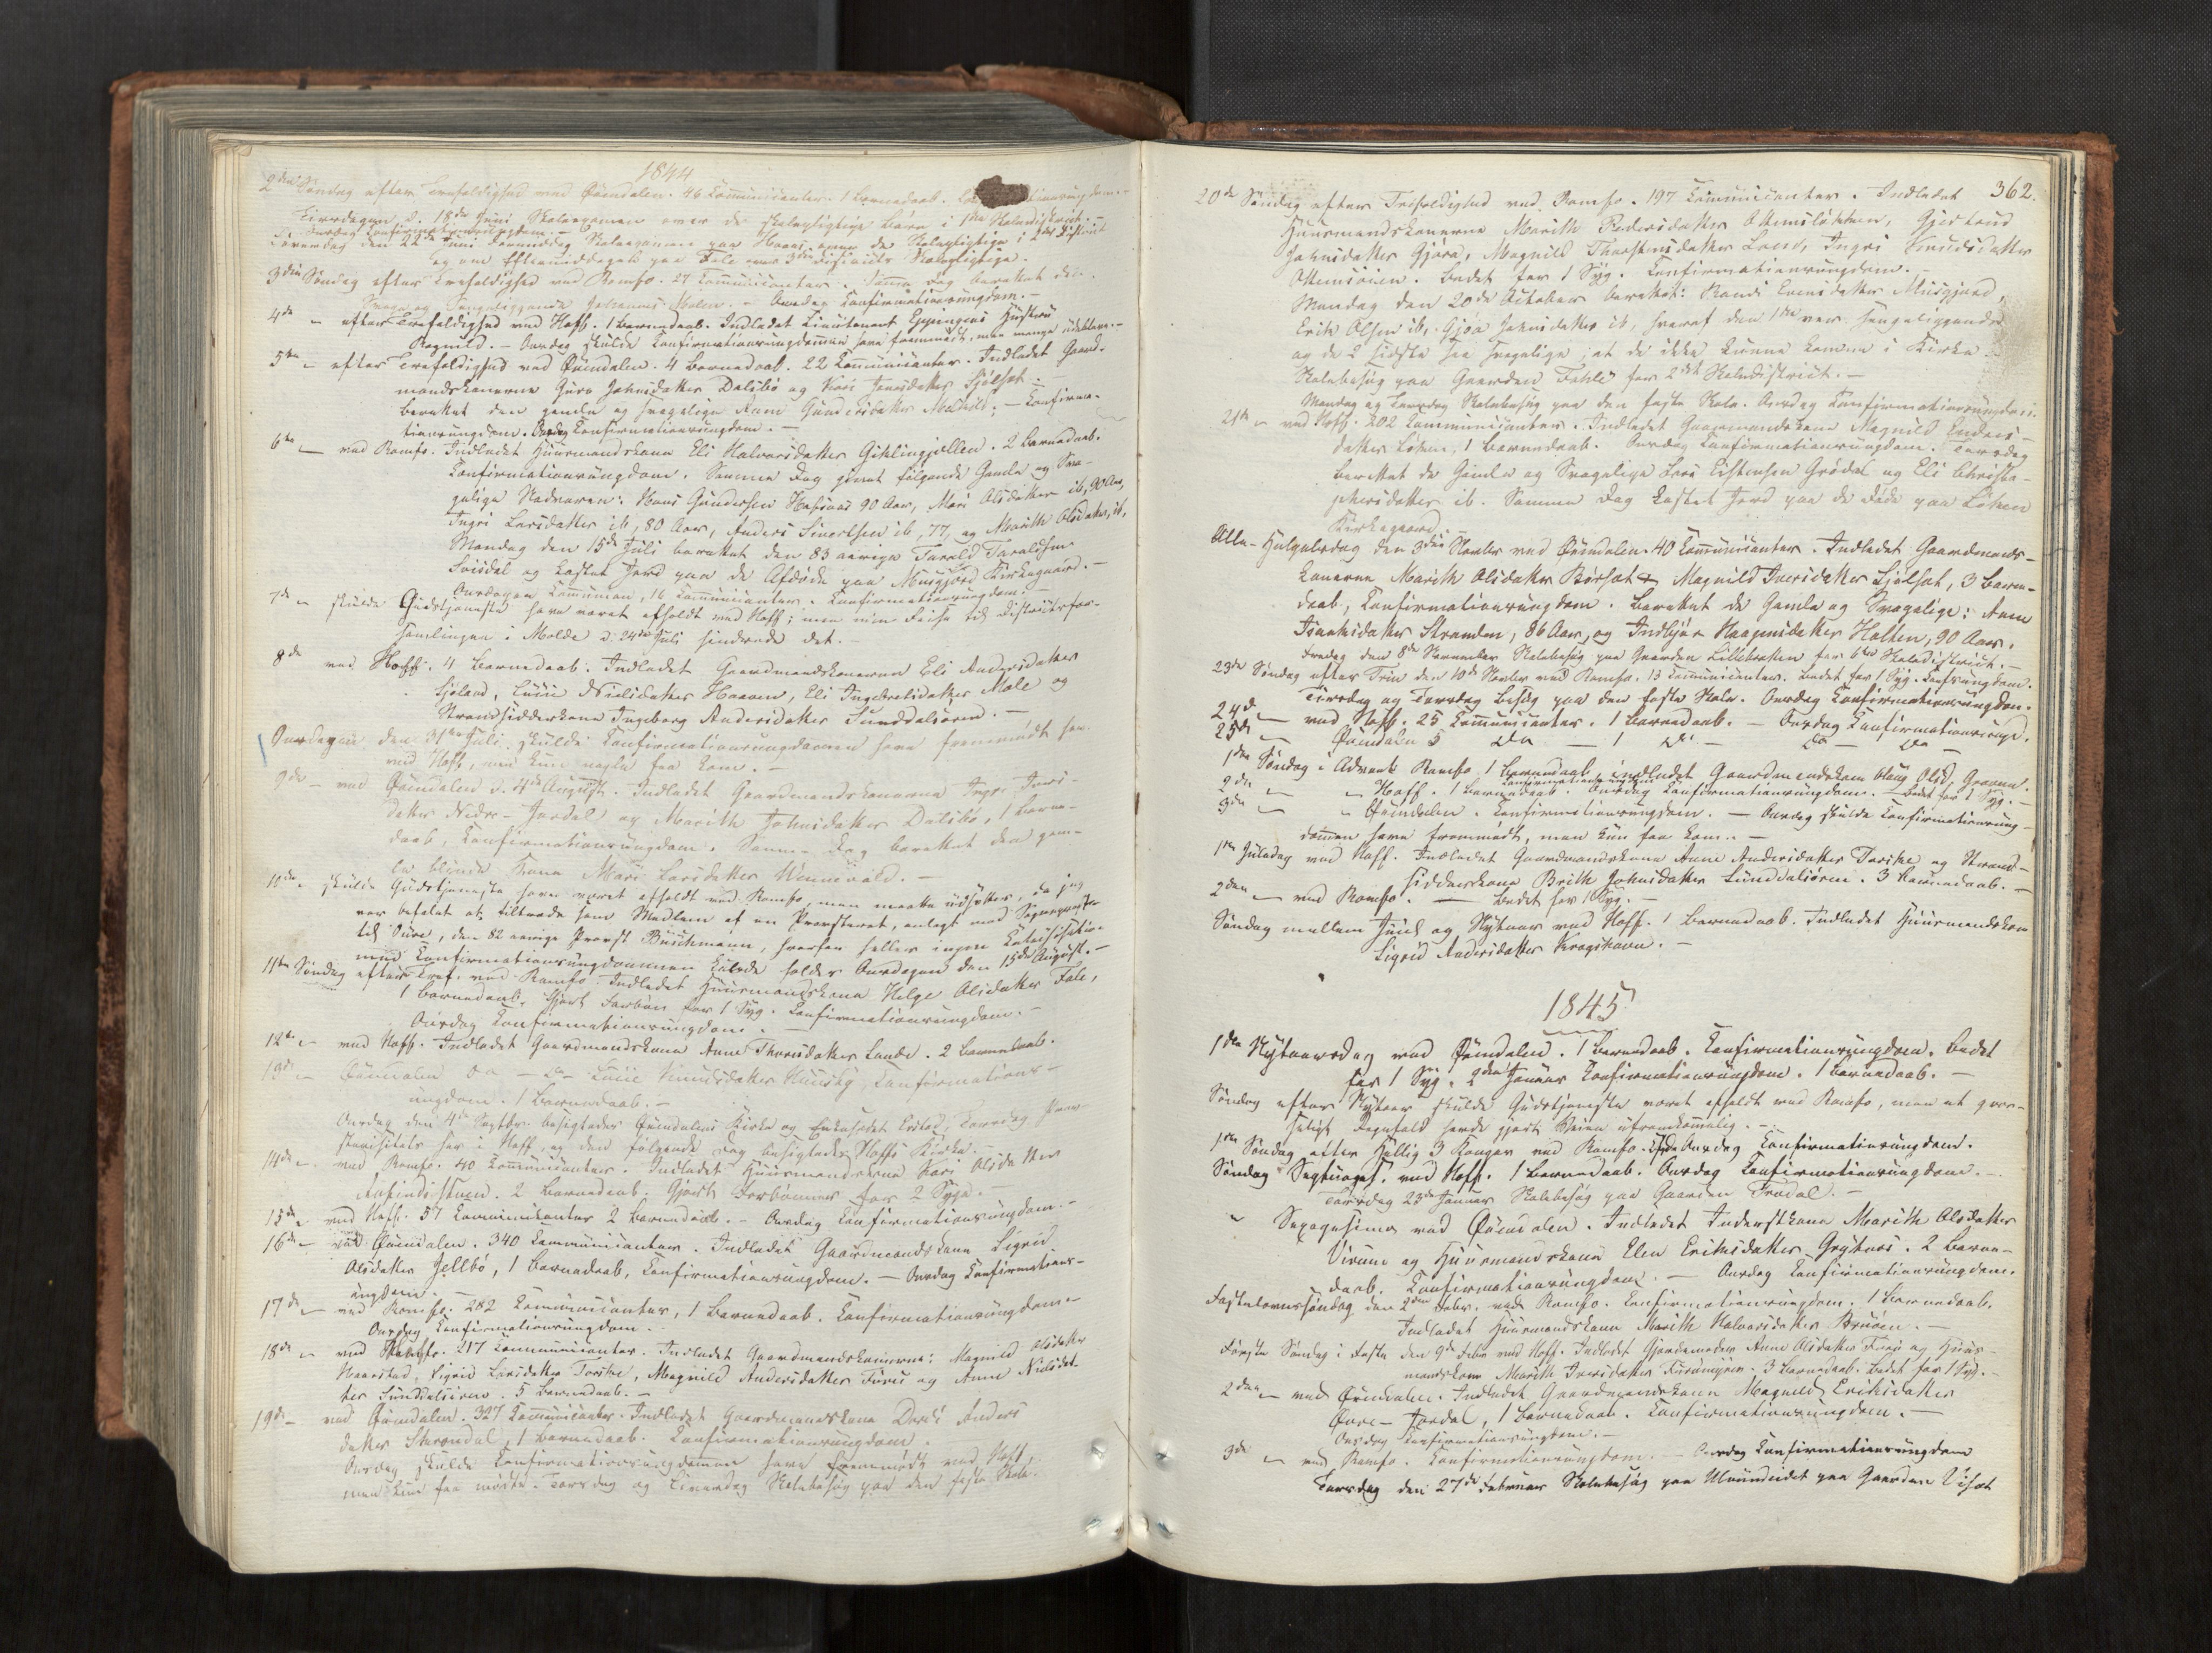 1844
2den Søndag efter Trefoldighed ved Øxendalen. 46 Communicanter. 1 Barnedaab.
Tirsdagen d. 18de Juni Skoleexamen over de skolepligtige Børn i 1ste Skoledistrict.
Onsdag Confirmationsungdom.
Løverdag den 22de Juni Formiddag Skoleexamen paa Hoaas over de Skolepligtige i 2det District
og om Eftermiddagen paa Fale over 3die Districts Skolepligtige.
3die Søndag efter Trefoldighed ved Romfo. 27 Communicanter. Samme Dag berettet den
Svage og Sengeliggende Johannes Holen. - Onsdag Confirmationsungdom. -
4de - efter Trefoldighed ved Hoff. 1 Barnedaab. Indledet Lieutenant Eppingens Hustru
Magnild. - Onsdag skulde Confirmationsungdommen have fremmødt, men mange udebleve. -
5te - efter Trefoldighed ved Øxendalen. 4 Barnedaab. 22 Communicanter. Indledet Gaard-
mandskonerne Guro Johnsdatter Dalibø og Kari Jonsdatter Sjølset.
Berettet den gamle og svagelige Anne Gundersdatter Melhold. - Confirma-
tionsungdom. Onsdag Confirmationsungdom. -
6te - ved Romfo. Indledet Huusmandskone Eli Halvorsdatter Giklingjellen. 2 Barnedaab.
Confirmationsungdom. Samme Dag givet følgende Gamle og Sva-
gelige Nadveren: Hans Gundersen Hafsaas 90 Aar, Mari Olsdatter ib, 90 Aar,
Ingri Larsdatter ib, 80 Aar, Anders Sivertsen ib, 77, og Marith Olsdatter, ib,
Mandag den 15de Juli berettet den 83 aarige Tarald Taraldsen
Svisdal og kastet Jord paa de Afdøde paa Musgjerd Kirkegaard. -
Onsdagen Communion, 16 Communicanter. Confirmationsungdom. -
7de - skulde Gudstjeneste have været afholdt ved Hoff; men min Reise til Districtsfor-
samlingen i Molde d. 24de Juli hindrede det. -
8de - ved Hoff. 4 Barnedaab. Indledet Gaardmandskonerne Eli Andersdatter
Sjøland, Lucie Nielsdatter Hoaven, Eli Ingebretsdatter Mæle og
Strandsidderkone Ingeborg Andersdatter Sunddalsøren. -
Onsdagen den 31te Juli skulde Confirmationsungdommen have fremmødt her
ved Hoff, men kun nogle faa kom. -
9de - ved Øxendalen d. 4de August. Indledet Gaardmandskonerne Ingr. Iversdatter
Nedre-Jordal og Marith Johnsdatter Dalibø, 1 Barne-
daab, Confirmationsungdom. Samme Dag berettet den gam-
le blinde Kone Mari Larsdatter Wennevold. -
10de - skulde Gudstjeneste have været afholdt ved Romfo, men maatte udsættes, da jeg
var befalet at tiltræde som Medlem af en Provsteret, anlagt mod Sognepræst
til Øure, den 82 aarige Provst Buschmann, hvorfor heller ingen Catechisation
med Confirmationsungdommen kunde holdes Onsdagen den 15de August. -
11te Søndag efter Tref. ved Romfo. Indledet Huusmandskone Helge Olsdatter Fale,
1 Barnedaab, Gjort Forbøn for 1 Syg. Confirmationsungdom. -
Onsdag Confirmationsungdom. -
12te - ved Hoff. Indledet Gaardmandskone Anne Thoresdatter Lande. 2 Barnedaab.
13de - Øxendalen do - do Lucie Knudsdatter Huusby, Confirmations-
ungdom. 1 Barnedaab. -
Onsdag den 4de Septbr. besigtedes Øxendalens Kirke og Enkesædet, Torsdag Prov-
stevisitats her i Hoff og den følgende Dag besigtedes Hoffs Kirke.
14de - ved Romfo. 40 Communicanter. Indledet Huusmandskone Kari Olsdatter
2 Barnedaab. Gjort Forbønner for 2 Syge. -
15de - ved Hoff. 57 Communicanter 2 Barnedaab. - Onsdag Confirmationsungdom. -
16de - ved Øxendalen. 340 Communicanter. Indledet Gaardmandskone Sigrid
Olsdatter Jellbø, 1 Barnedaab, Confirmationsungdom. - Onsdag Confirmations-
ungdom.
17de - ved Romfo. 282 Communicanter, 1 Barnedaab. Confirmationsungdom -
Onsdag Confirmationsungdom. -
18de - ved Hoff. 217 Communicanter. Indledet Gaardmandskonerne: Magnild Olsdatter
Haarstad, Sigrid Larsdatter Torske, Magnild Andersdatter Furu og Anne Nielsdat-
ter Sunddalsøren. 5 Barnedaab. -
19de - ved Øxendalen. 327 Communicanter. Indledet Gaardmandskone Dordi Anders
datter Storøndal, 1 Barnedaab. Confirmationsungdom.
Onsdag skulde Confirmationsungdommen have fremmødt ved Hoff
men kun faa mødte. Torsdag og Løverdag Skolebesøg paa den faste Skole.
362.
20de Søndag efter Trefoldighed ved Romfo. 197 Communicanter. Indledet
Huusmandskonerne Marith Pedersdatter Ottemsløkken, Gjertrud
Johnsdatter Gjøra, Magnild Thorstensdatter Loese, Ingri Knudsdatter
Ottemsøien. Bedet for 1 Syg. Confirmationsungdom.
Mandag den 20de October berettet: Randi Evensdatter Musgjerd,
Erik Olsen ib, Gjøa Johnsdatter ib, hvoraf den 1ste var sengeliggende
og de 2 sidste saa svagelige, at de ikke kunne komme i Kirke.
Skolebesøg paa Gaarden Fahle for 2det Skoledistrict. -
Mandag og Løverdag Skolebesøg paa den faste Skole. Onsdag Confirmationsungdom.
21de - ved Hoff. 202 Communicanter. Indledet Gaardmandskone Magnild Anders-
datter Løken, 1 Barnedaab. Onsdag Confirmationsungdom. Torsdag
berettet de Gamle og Svagelige Lars Eistensen Grødal og Eli Christo-
phersdatter ib. Samme Dag kastet Jord paa de Døde paa Løken
Kirkegaard. -
Alle-Helgensdag den 3die Novbr ved Øxendalen. 40 Communicanter. Indledet Gaardmands-
konerne Marith Olsdatter Børset & Magnild Iversdatter Sjølset, 3 Barne-
daab, Confirmationsungdom. Berettet de Gamle og Svagelige: Anne
Isaaksdatter Stranden, 86 Aar, og Indbjør Haagensdatter Holten, 90 Aar.
Fredag den 8de November Skolebesøg paa Gaarden Lillebakken for 6te Skoledistrict. -
23de Søndag efter Trin den 10de Novbr ved Romfo. 13 Communicanter. Bedet for 1 Syg. Confsungdom.
Tirsdag og Torsdag Besøg paa den faste Skole. Onsdag Confirmationsungdom.
24de - ved Hoff. 25 Communicanter. 1 Barnedaab. - Onsdag Confirmationsungd.
25de - Øxendalen 5 do - 1 do - do - do -
1ste Søndag i Advent Romfo 1 Barnedaab, indledet Gaardmandskone Olaug Olsd. Grøvun.
Confirmationsungdom
2den - - Hoff. 1 Barnedaab. Onsdag Confirmationsungdom. - Bedet for 1 Syg. -
3die - - Øxendalen. Confirmationsungdom. - Onsdag skulde Confirmationsung-
dommen have fremmødt, men kun faa kom. -
1ste Juledag ved Hoff. Indledet Gaardmandskone Anne Andersdatter Torske og Strand-
sidderkone Brith Johnsdatter Sunddalsøren. 3 Barnedaab. -
2den - ved Romfo. - Bedet for 1 Syg. -
Søndag mellem Juul og Nytaar ved Hoff. 1 Barnedaab. Indledet Huusmandskone
Sigrid Andersdatter Krogshavn. -
1845
1ste Nytaarsdag ved Øxendalen. 1 Barnedaab. Confirmationsungdom. Bedet
for 1 Syg. 2den Januar Confirmationsungdom. 1 Barnedaab. -
Søndag efter Nytaar skulde Gudstjeneste været afholdt ved Romfo, men et qvæ-
Regnfald havde gjort Veien ufremkommelig. -
1ste Søndag efter Hellig 3 Konger ved Romfo. Onsdag Confirmationsungdom.
Søndag Septuages. ved Hoff. 1 Barnedaab. Onsdag Confirmationsungdom. -
Torsdag 23de Januar Skolebesøg paa Gaarden Frødal. -
" Sexagesima ved Øxendalen. Indledet Inderstkone Marith Olsdatter
Virum og Huusmandskone Elen Eriksdatter Grytnæs. 2 Barne-
daab. Confirmationsungdom. - Onsdag Confirmationsungdom.
Fastelavnssøndag den 2den Febr. ved Romfo. Confirmationsungdom. 1 Barnedaab.
Indledet Huusmandskone Marith Halvorsdatter Bruøien. -
Første Søndag i Faste den 9de Febr ved Hoff. Indledet Gjordemoder Anne Olsdatter Furu og Huus-
mandskone Marith Iversdatter Furumyren. 3 Barnedaab. Bedet for 1 Syg. -
2den - ved Øxendalen. Indledet Gaardmandskone Magnild Eriksdatter
Øvre-Jordal, 1 Barnedaab. Confirmationsungdom. -
Onsdag Confirmationsungdom. -
3die - ved Romfo. Confirmationsungdom. - Onsdag Confirmationsungdom
Torsdag den 27de Februar Skolebesøg paa Ulvundeidet paa Gaarden Viset